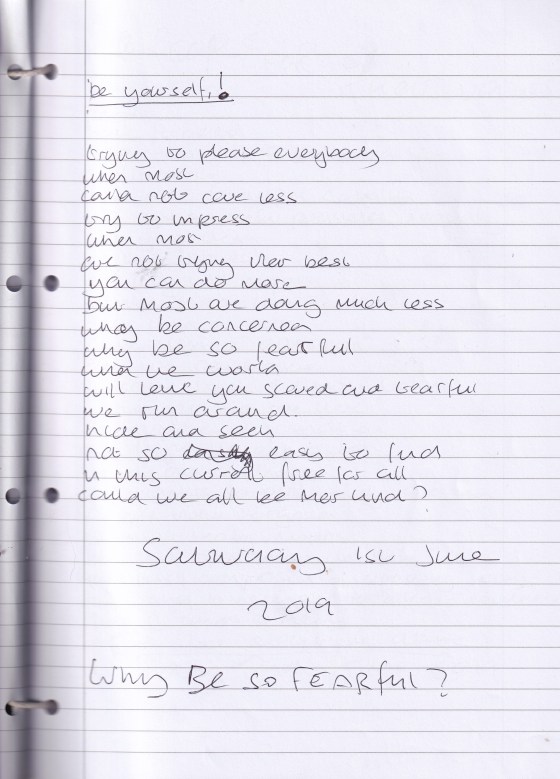 be yourself,!
trying to please everybody
when most
could not care less
try to impress
when most
are not trying their best
you can do more
but most are doing much less
why be concerned
why be so fearful
and we
will leave you scared and tearful
we run around.
hide and seek
not so easy to find
in this current free for all
could we all be kind?
Saturday 1st June
2019
Why BE so FEARful?